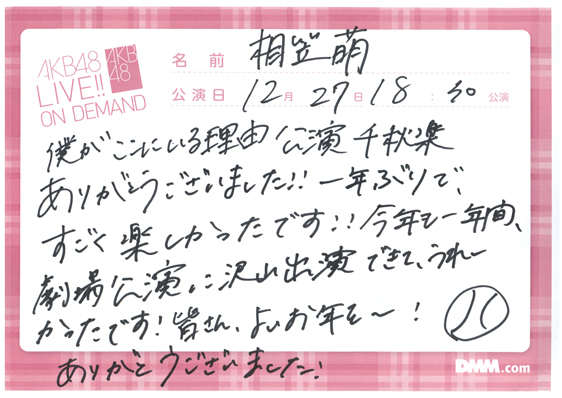 AKB48
LIVE!!
ON DEMAND
AKB
48
名前 相笠萌
公演日 12月27日18:30公演
僕がここにいる理由公演千秋楽
ありがとうございました!! 一年ぶりで、
すごく楽しかったです!! 今年も一年間、
劇場公演に沢山出演できて、うれし〜
かったです! 皆さん、よいお年を〜!
ありがとうございました!
DMM.com